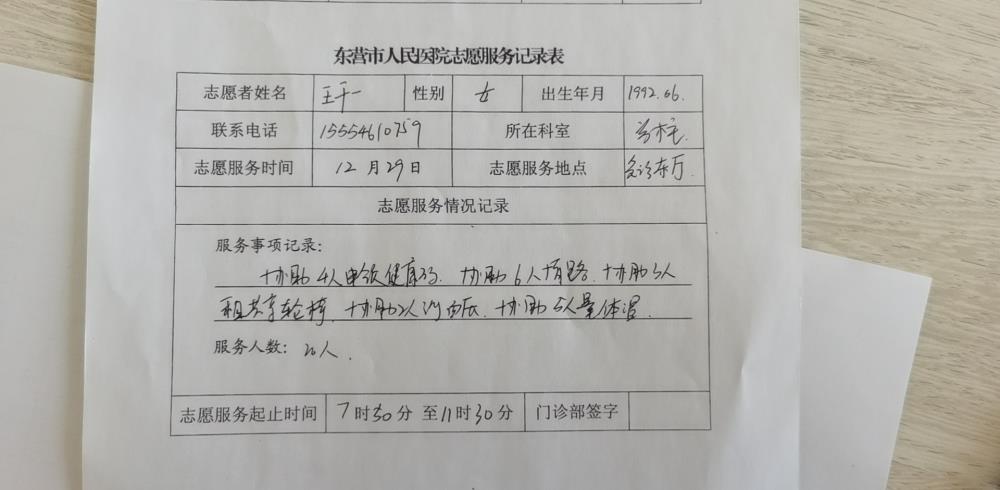 东营市人民医院志愿服务记录表
志愿者姓名 王千一 性别 女 出生年月 1992.06.
联系电话 15554610759 所在科室
志愿服务时间 12月29日 志愿服务地点 急诊东厅.
志愿服务情况记录
服务事项记录:
协助4人申领健康码. 协助6人指路. 协助3人
租共享轮椅. 协助2人 协助5人量体温.
服务人数: 20人.
志愿服务起止时间 7时30分至11时30分 门诊部签字